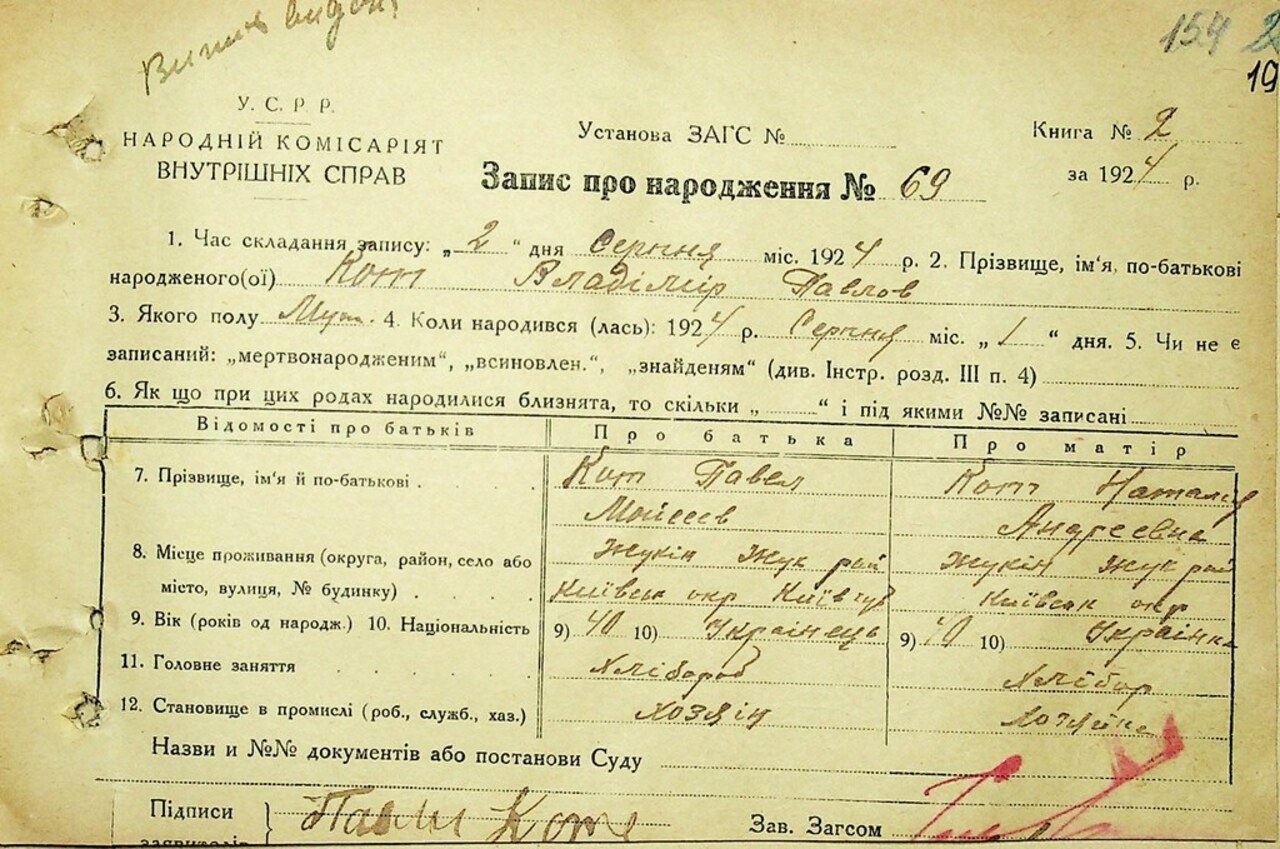 154 2
19
У. С. Р. Р.
НАРОДНІЙ КОМІСАРІЯТ
ВНУТРІШНІХ СПРАВ
Установа ЗАГС №
Книга № 2
за 1924 р.
Запис про народження № 69
1. Час складання запису: „2“ дня Серпня міс. 1924 р. 2. Прізвище, ім'я, по-батькові
народженого(ої) Кот Владімір Павлов
3. Якого полу Муж. 4. Коли народився (лась): 1924 р. Серпня міс. „1“ дня. 5. Чи не є
записаний: „мертвонародженим“, „всиновлен.“, „знайденям“ (див. Інстр. розд. III п. 4)
6. Як що при цих родах народилися близнята, то скільки „ “ і під якими №№ записані
Відомості про батьків Про батька Про матір
7. Прізвище, ім'я й по-батькові Кот Павел Кот Наталия
Мойсеев Андреевна
8. Місце проживання (округа, район, село або Жукін Жук рай Жукін Жук рай
місто, вулиця, № будинку) Київськ окр Київ губ Київськ окр
9. Вік (років од народж.) 10. Національність 9) 40 10) Українець 9) 40 10) Українка
11. Головне заняття Хлібороб Хлібор
12. Становище в промислі (роб., служб., хаз.) Хозяін Хозяйка
Назви и №№ документів або постанови Суду
Підписи
заявителів
Кот
Зав. Загсом